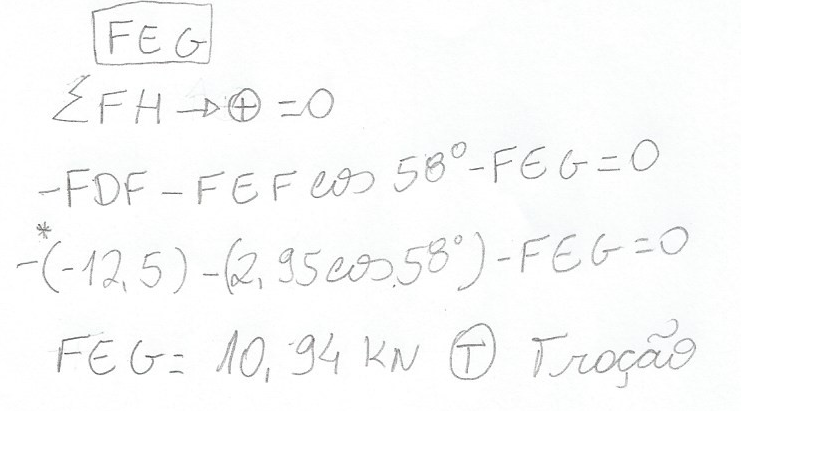 FEG
ΣFH → ⊕ = 0
-FDF - FEF cos 58° - FEG = 0
*
-(-12,5) - (2,95 cos 58°) - FEG = 0
FEG = 10,94 KN Ⓣ Troção